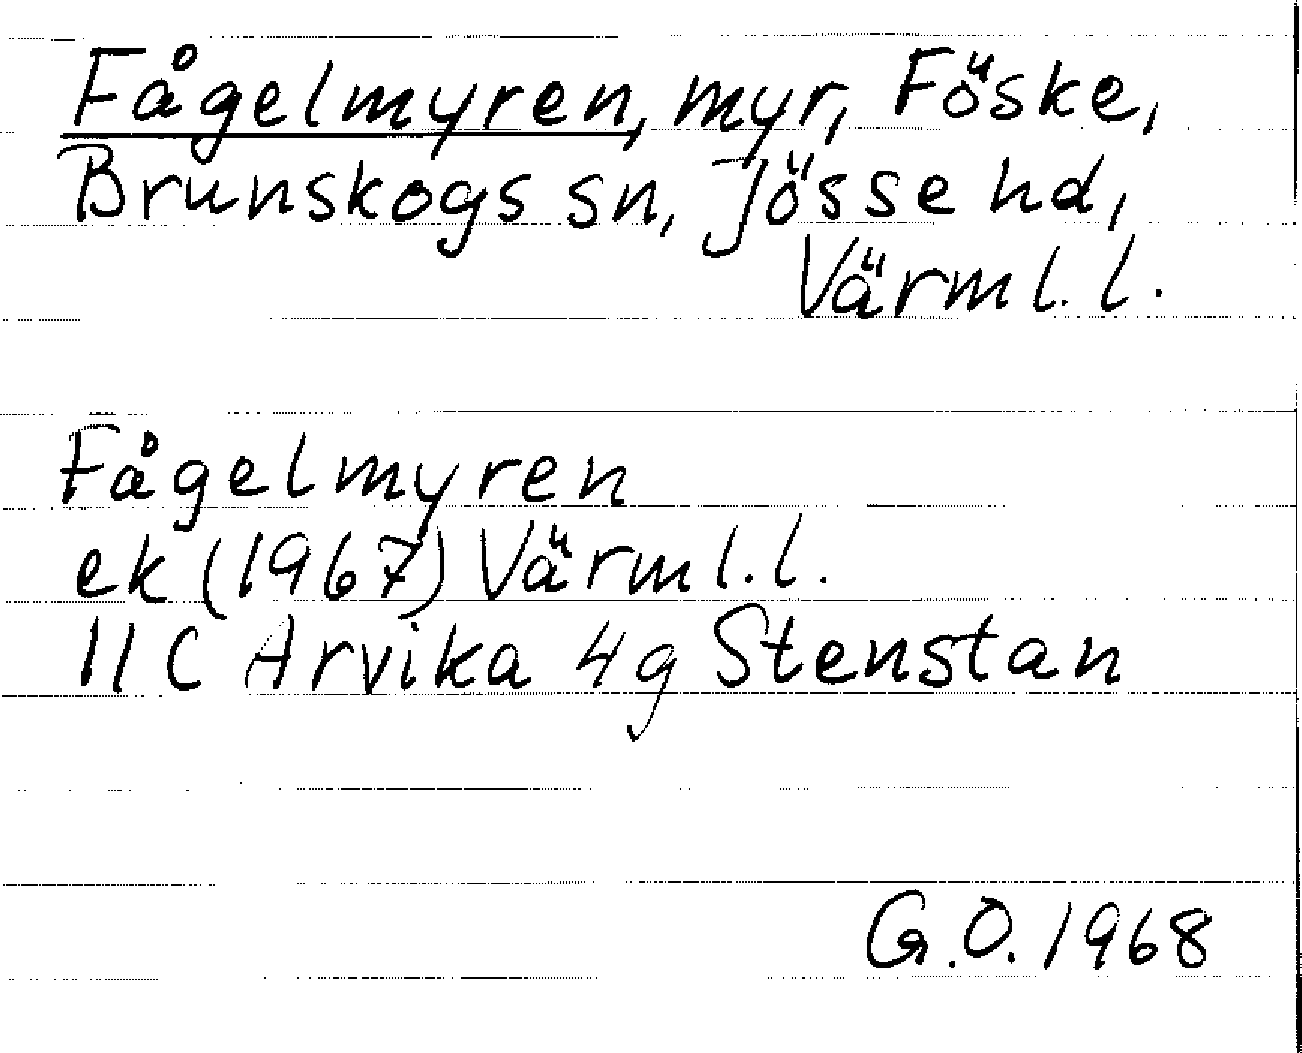 Fågelmyren, myr, Föske,
Brunskogs sn, Jösse hd,
Värml. l.
Fågelmyren
ek (1967) Värml. l.
11 C Arvika 4g Stenstan
G.O. 1968